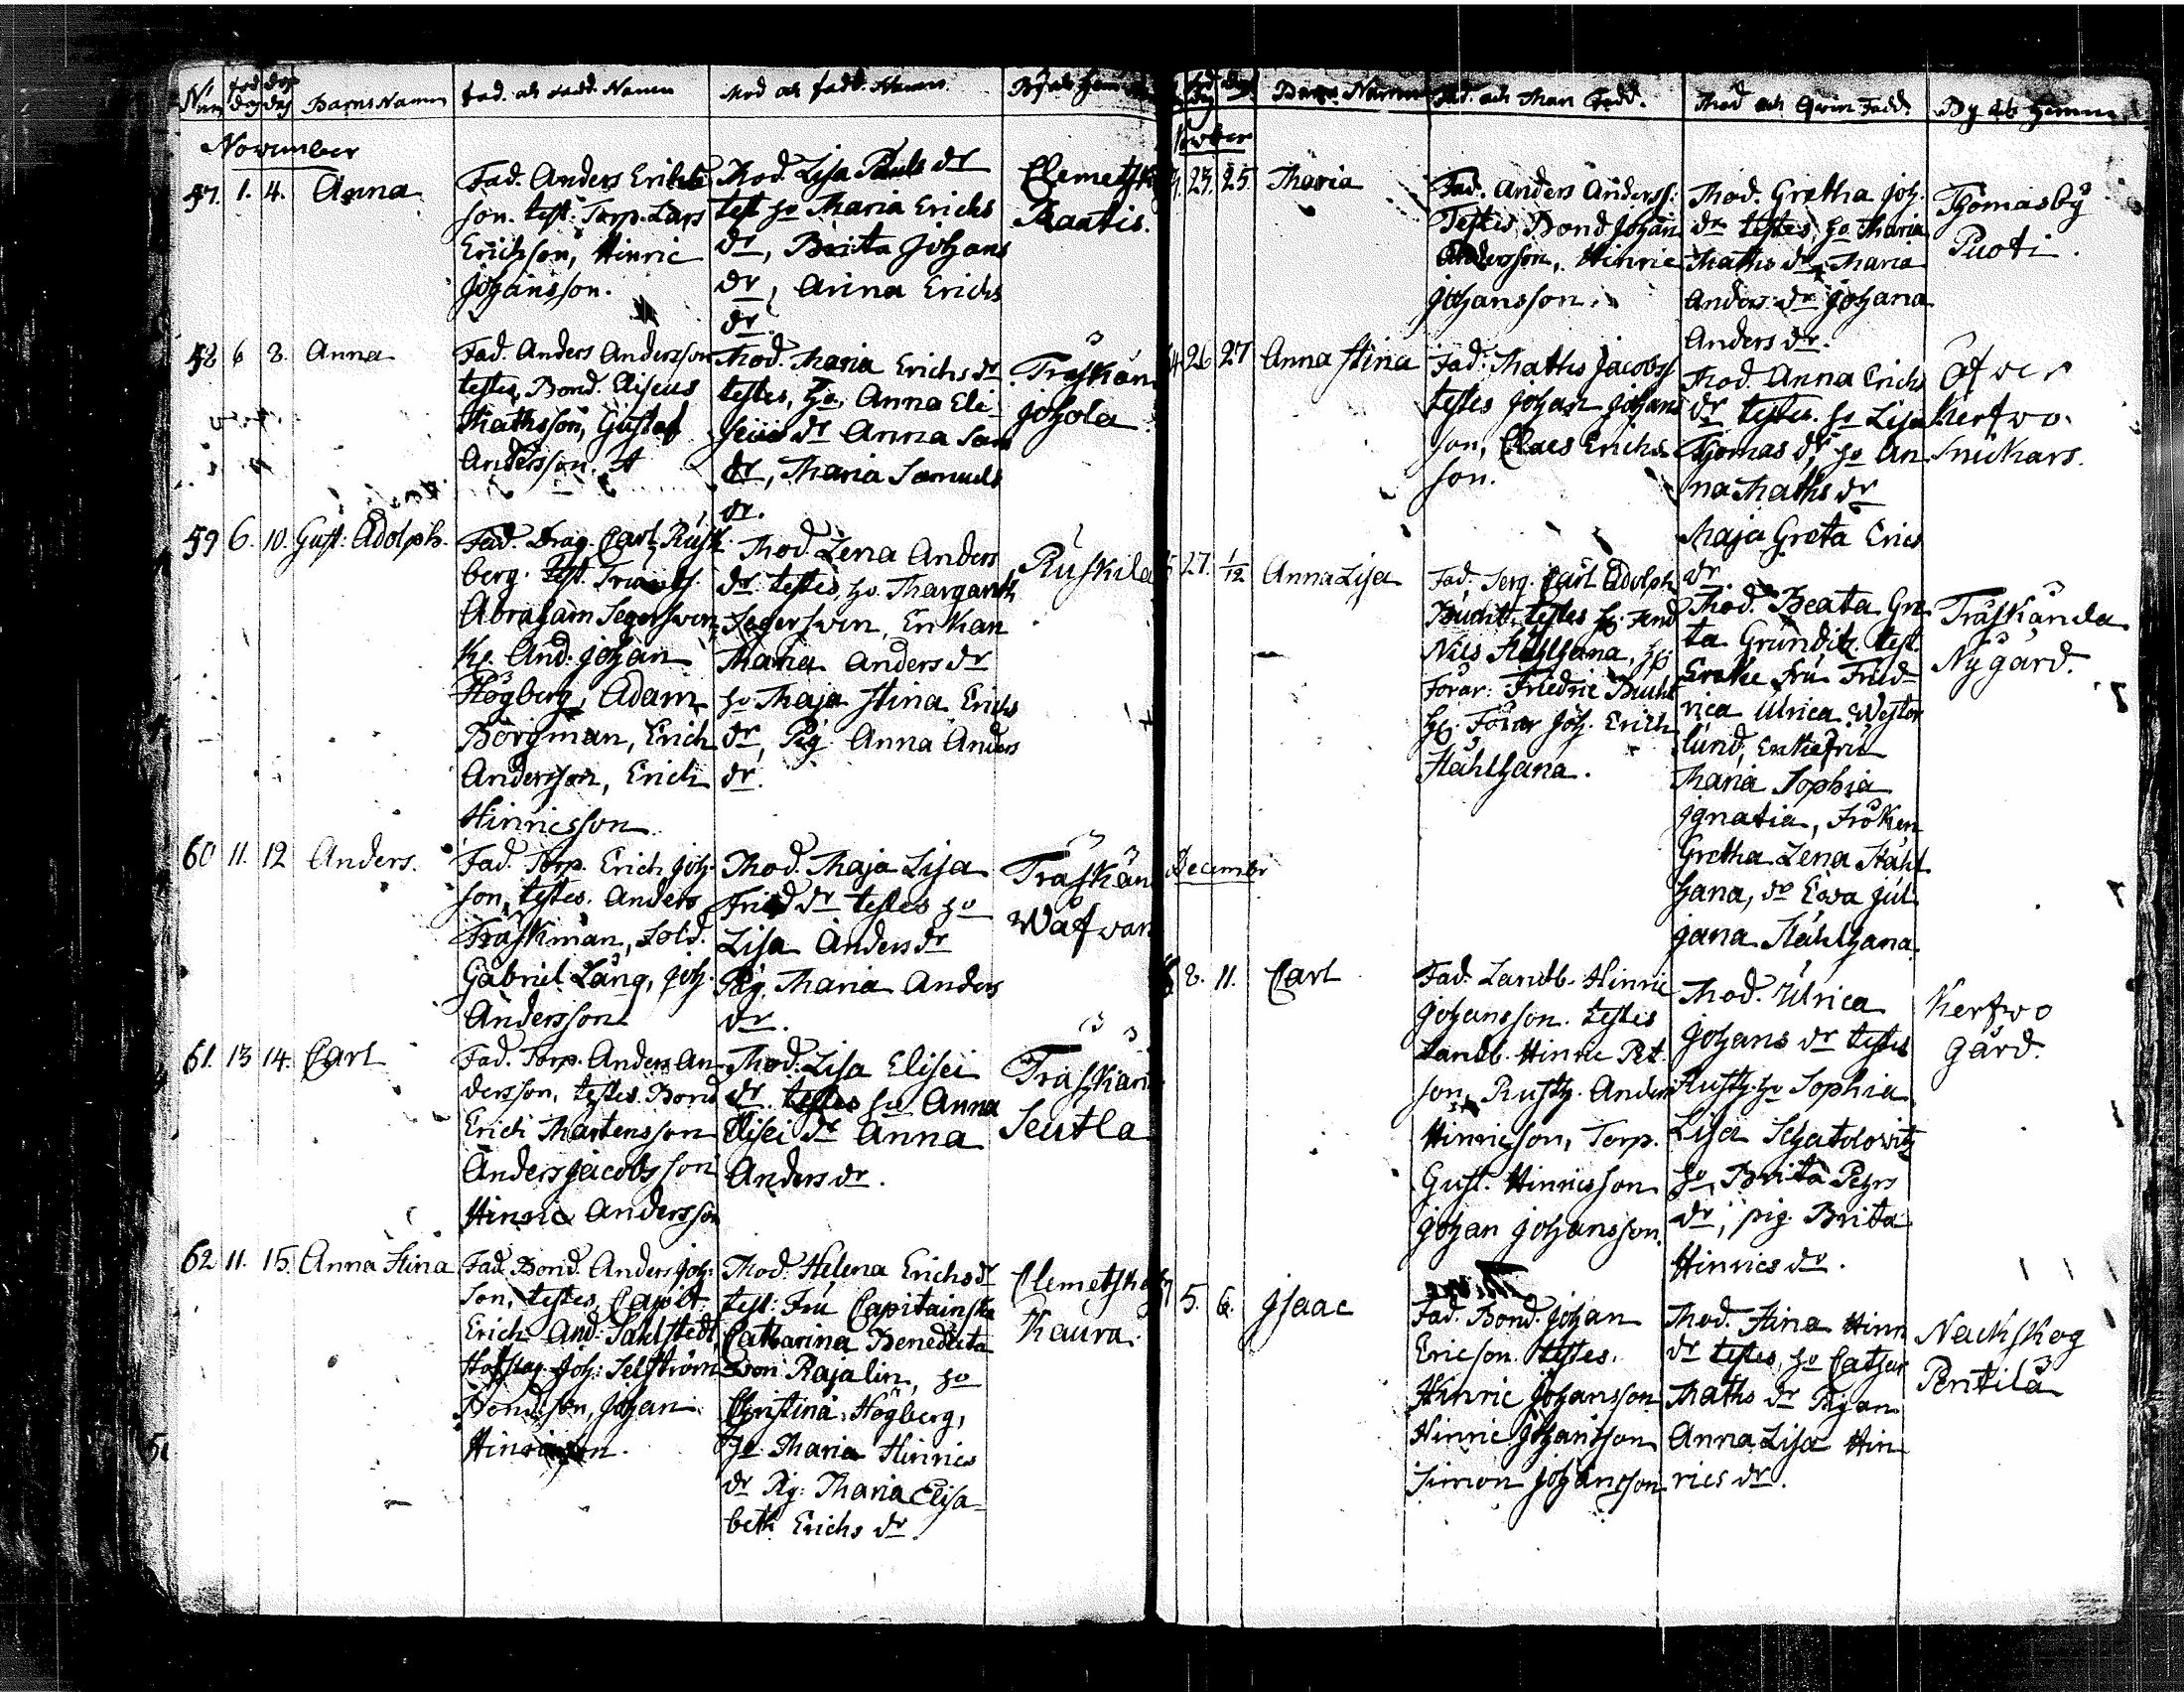 Num föd dag döp dag Barns Namn Fad. och Fadd. Namn Mod och Fadd. Namn By och Hem
November
57. 1. 4. Anna
Fad. Anders Erichs
son. test: Torp. Lars
Erichson, Hinric
Johansson.
Mod. Lisa Pauls dr
test ho Maria Erichs
dr, Brita Johans
dr, Anna Erichs
dr.
Clemetsk
Mantis.
58 6 8. Anna
Fad. Anders Andersson
testes, Bond. Eliseus
Mathsson, Gustaf
Andersson.
Mod. Maria Erichs dr
testes, ho. Anna Ele-
seius dr Anna Sam
dr, Maria Samuels
dr.
Träskän
Johola
59 6. 10. Gust: Adolph.
Fad. Drag. Carl Rusk
berg. test.
Abraham Segersven,
And: Johan
Högberg, Adam
Borgman, Erich
Andersson, Erich
Hinricsson
Mod. Lena Anders
dr testes, ho. Margareth
Segersven, Enkan
Maria Anders dr
ho Maja Stina Erichs
dr, Pig. Anna Anders
dr.
Ruskila
60 11. 12 Anders.
Fad. Torp. Erich Joh:
son, testes. Anders
Träskman, Sold.
Gabriel Lång, Joh.
Andersson
Mod. Maja Lisa
Frid dr testes ho
Lisa Anders dr
Pig. Maria Anders
dr.
Träskän
Wafwar
61. 13 14. Carl
Fad. Torp. Anders An-
dersson, testes. Bond
Erich Mårtensson
Anders Jacobsson
Hinric Andersson
Mod. Lisa Elisei
dr testes ho Anna
Elisei dr Anna
Anders dr.
Träskän
Seutla
62 11. 15. Anna Stina
Fad. Bond. Anders Joh:
son, testes, Capit.
Erich And: Sahlstedt,
Joh: Selström
Johan
Hinricson.
Mod. Helena Erichs dr
test: Fru Capitainska
Catharina Benedicta
von Rajalin, ho
Christina Högberg,
ho Maria Hinrics
dr Pig: Maria Elisa-
beth Erichs dr.
Clemetskog
Kaura.
Barns Namn Fad. och Man Fadd. Mod och Qvin Fadd. By och Hemm
Novber
23. 25. Maria
Fad. Anders Anderss:
Testes, Bond Johan
Andersson, Hinric
Johansson.
Mod. Gretha Joh.
dr testes, ho Maria
Maths dr, Maria
Anders dr Johana
Anders dr.
Thomasby
Puoti.
26 27 Anna Stina
Fad: Maths Jacobss
testes Johan Johans
son, Claes Erichs
son.
Mod. Anna Erichs
dr testes. ho Lisa
Thomas dr, ho An
na Maths dr
Maja Greta Erics
dr.
Öfwer
Kertwo
Snickars.
27. 1/12 Anna Lisa
Fad. Serg. Carl Adolph
Bucht, testes
Nils Stålhana,
Förar: Friedric Bucht
Förar Joh. Erich
Stålhana.
Mod. Beata Gre
ta Grunditz. test.
Enke Fru Fried
rica Ulrica Wester
lund, Enkefru
Maria Sophia
Ignatia, Fröken
Gretha Lena Stål
hana, do Ewa Jul
jana Stålhana.
Träskända
Nygård.
December
8. 11. Carl
Fad. Landb. Hinric
Johansson. testes
Landb. Hinric Pet.
son, Rusth. Anders
Hinricson, Torp.
Gust. Hinricsson
Johan Johansson.
Mod. Ulrica
Johans dr testes
Rusth. ho Sophia
Lisa Schatelowitz
ho, Brita Pehrs
dr, pig. Brita
Hinrics dr.
Kertwo
Gård.
5. 6. Isaac
Fad. Bond. Johan
Ericson. testes.
Hinric Johansson
Hinric Johansson
Simon Johansson
Mod. Stina Hinr
dr testes, ho Cathar
Maths dr Pigan
Anna Lisa Hin
rics dr.
Nackskog
Pentilä